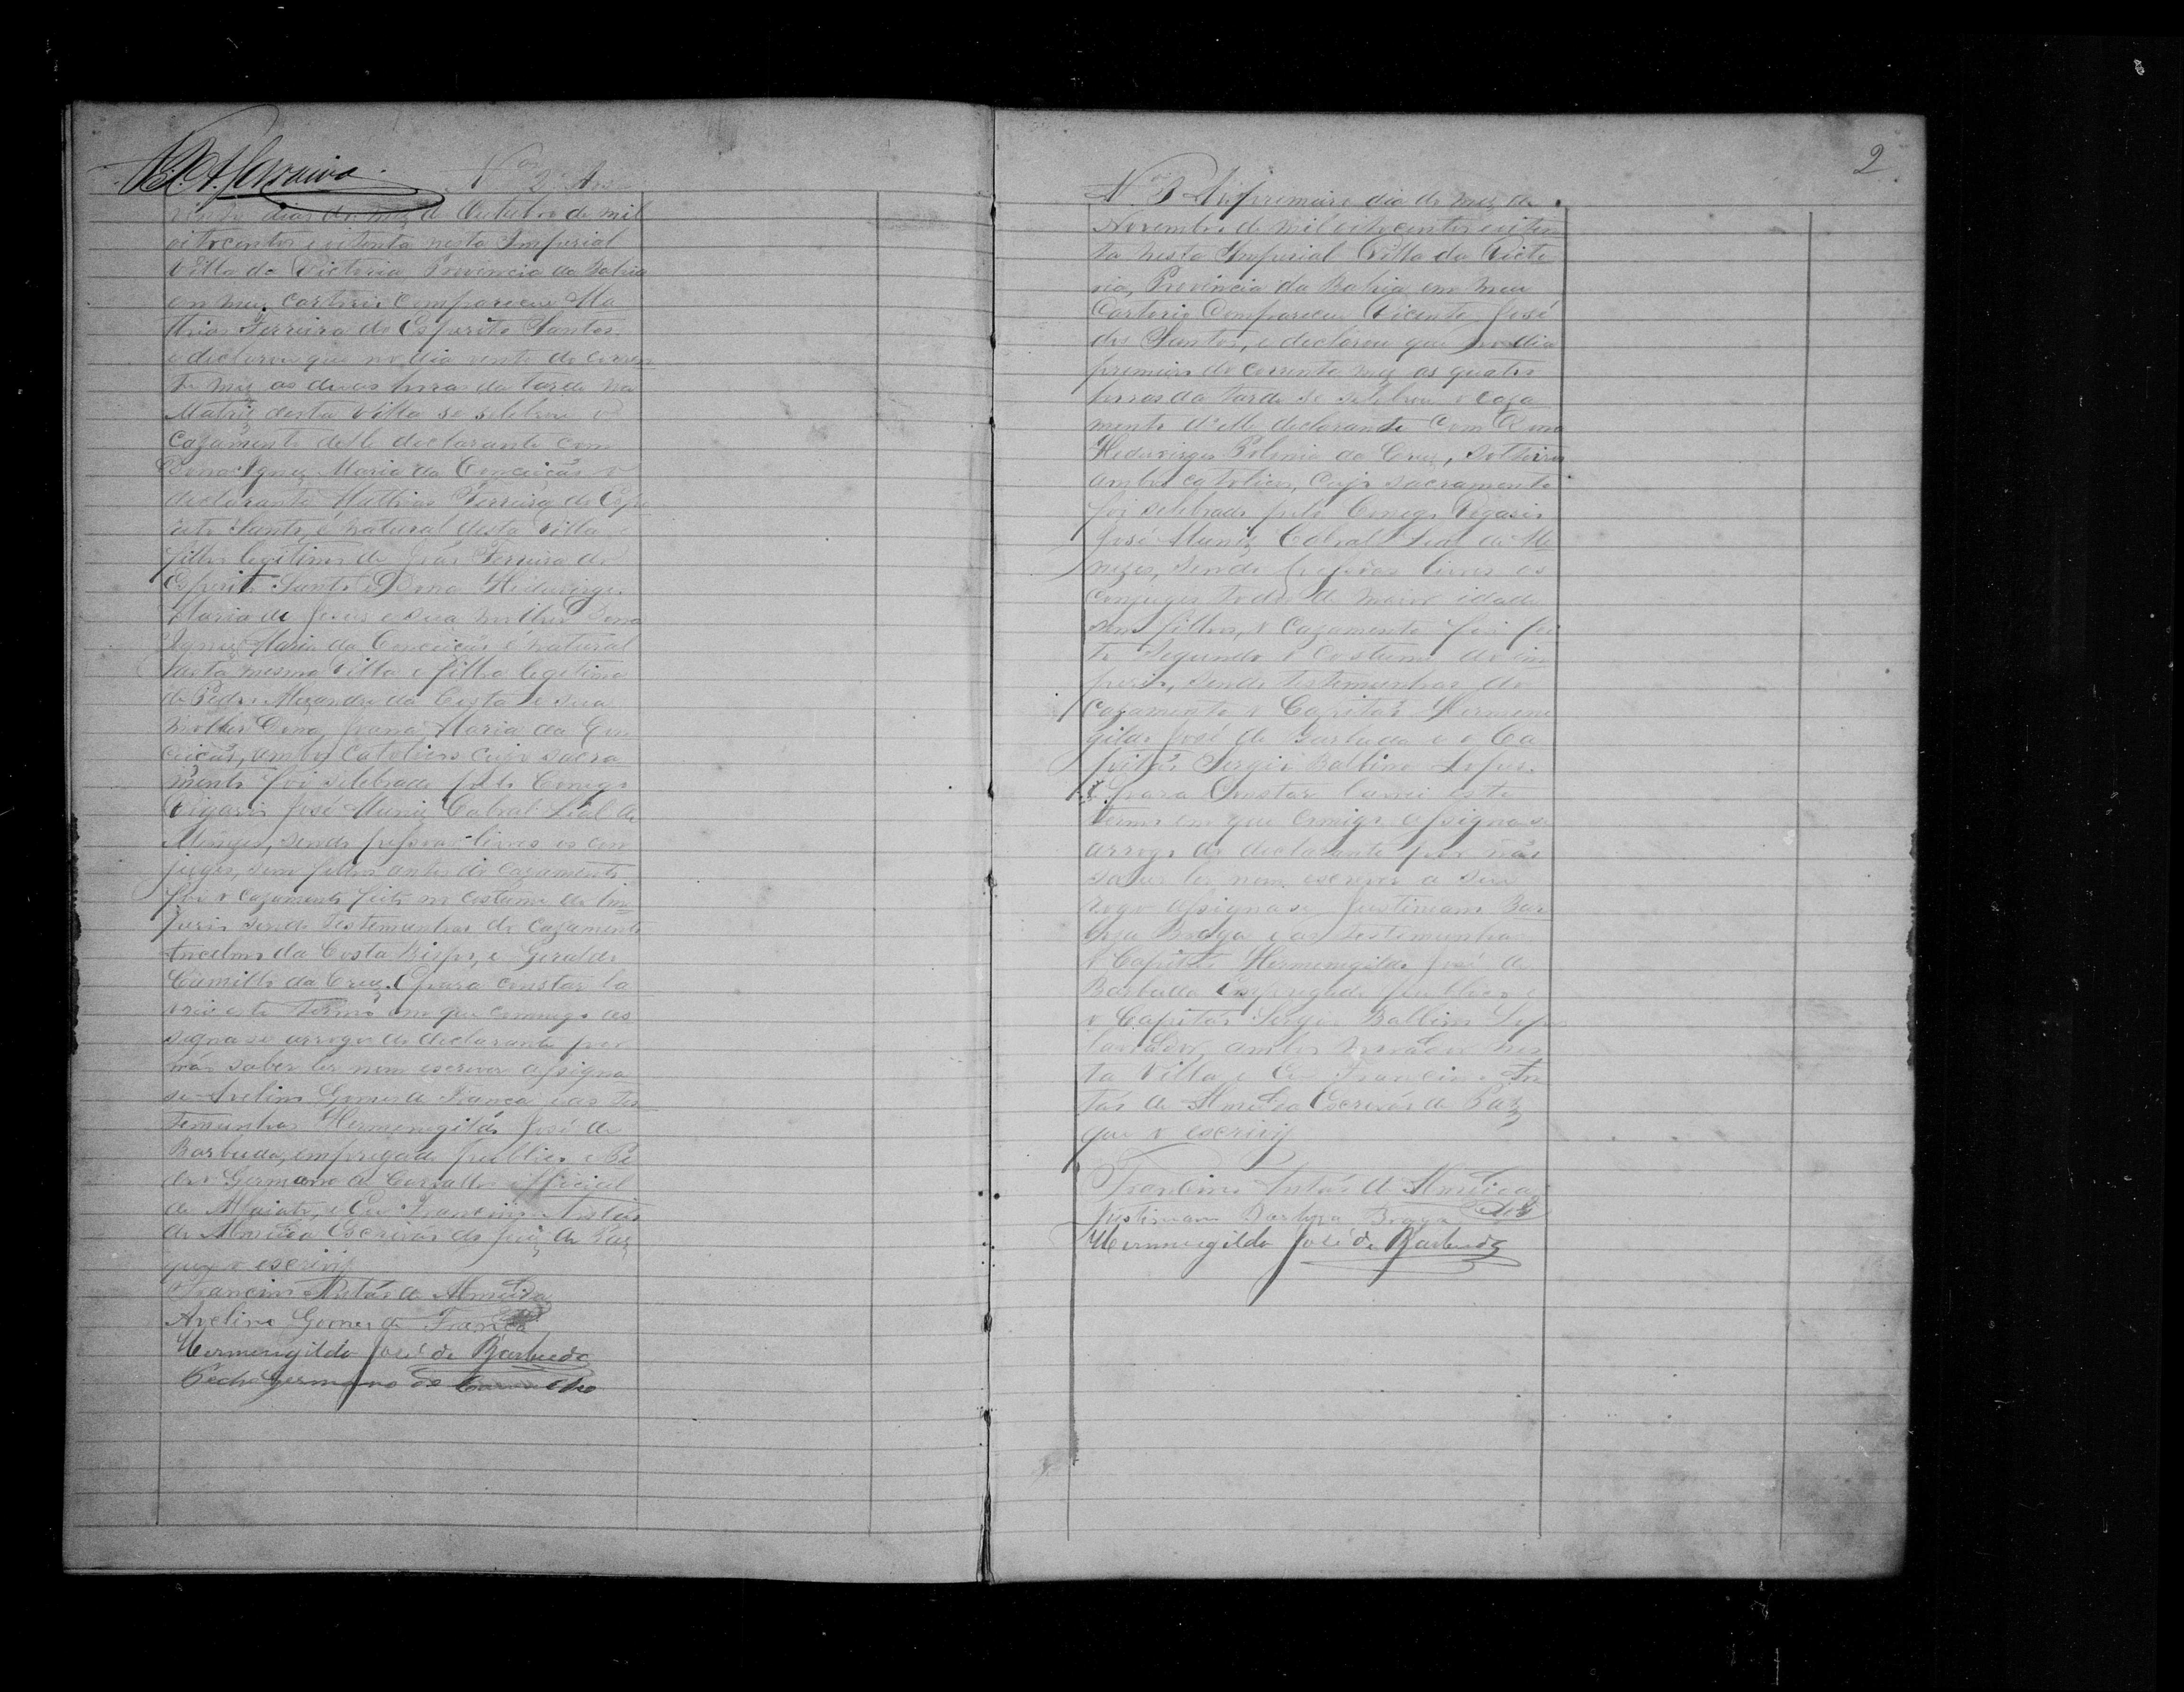 Nº 2 Aos
vinte dias do mez de Outubro de mil
oitocentos e oitenta nesta Imperial
Villa da Victoria Provincia da Bahia
em meu cartorio compareceu Ma
thias Ferreira do Espirito Santo
e declarou que no dia vinte do corren
te mez as duas horas da tarde na
Matriz desta Villa se selebrou o
Cazamento delle declarante com
Dona Ignez Maria da Conceição o
declarante Mathias Ferreira do Espi
rito Santo, é natural desta villa e
filho legitimo de João Ferreira do
Espirito Santo e Dona Heduvirges
Maria de Jesus e sua mulher Dona
Ignez Maria da Conceição é natural
desta mesma villa e filha legitima
de Pedro Alexandre da Costa e sua
molher Dona Joana Maria da Con
ceição, ambos Catolicos cujo sacra
mento foi selebrado pelo Conego
Vigario José Muniz Cabral Leal de
Menezes, sendo pessoas livres os con
juges, sem filhos antes do cazamento
foi o cazamento feito no costume do Im
perio sendo testemunhas do cazamento
Ancelmo da Costa Bispo, e Geraldo
Camillo da Cruz. E para constar la
vrei este termo em que commigo as
signa se arrogo do declarante por
não saber ler nem escrever assigna
se Avelino Gomes de França e as tes
temunhas Hermenegildo José de
Barbuda, empregado publico e Pe
dro Germano de Carvalho official
de e Eu Francino Antão
de Almeida Escrivão do Juiz de Paz
que o escrivy
Francino Antão de Almeida
Avelino Gomes de França
Hermenegildo José de Barbuda
Pedro Germano de Carvalho
2
Nº 3 Ao primeiro dia do mez de
Novembro de mil oitocentos e oiten
ta nesta Imperial Villa da Victo
ria, Provincia da Bahia em meu
Cartorio Compareceu Vicente José
dos Santos, e declarou que no dia
primeiro do corrente mez as quatro
horras da tarde se selebrou o caza
mento d'elle declarante Com Dona
Heduvirges Polonia da Cruz, solteiros
ambos catolicos, cujo sacramento
foi selebrado pelo Conego Vigario
José Muniz Cabral Leal de Me
nezes, sendo pessoas livres os
conjuges todos de maior idade
sem filhos, o cazamento foi fei
to segundo o costume do im
perio, sendo testemunhas do
cazamento o Capitão Hermene
gildo José de Barbuda e o Ca
pitão Sergio Balbino Lopes.
E para Constar lavrei este
termo em que comigo assigna se
arrogo do declarante por não
saber ler nem escrever a seu
rogo assigna se Justiniano Bar
boza Braga e as testemunhas
o Capitão Hermenegildo José de
Barbuda Empregado publico e
o Capitão Sergio Balbino Lopes
lavrador, ambos morador nes
ta Villa e Eu Francino An
tão de Almeida Escrivão de Paz
que o escrivy
Francino Antão de Almeida
Justiniano Barboza Braga
Hermenegildo José de Barbuda